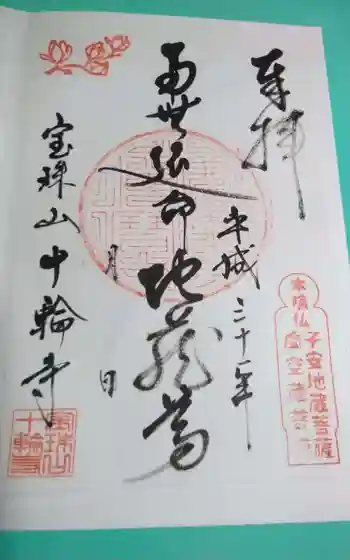 奉拝
平成三十一年
月 日
南無延命地蔵尊
宝珠山十輪寺
子安地蔵菩薩
虚空蔵菩薩
寶珠山
十輪寺